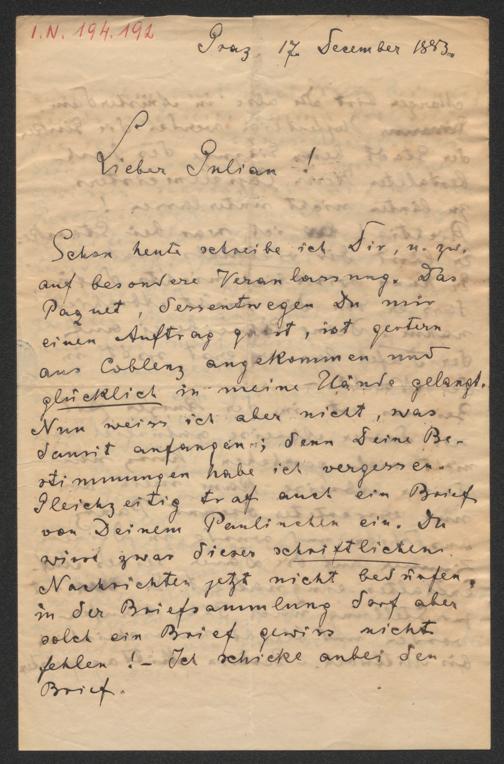 I.N. 194.192
Graz, 17. December 1883.
Lieber Julian !
Schon heute schreibe ich Dir, u. zw.
auf besondere Veranlassung. Das
Paquet, dessentwegen Du mir
einen Auftrag gabst, ist gestern
aus Coblenz angekommen und
glücklich in meine Hände gelangt.
Nun weiss ich aber nicht, was
damit anfangen; denn Deine Be-
stimmungen habe ich vergessen.
Gleichzeitig traf auch ein Brief
von Deinem Paulinchen ein. Du
wirst zwar dieser schriftlichen
Nachrichten jetzt nicht bedürfen,
in der Briefsammlung darf aber
solch ein Brief gewiss nicht
fehlen ! – Ich schicke anbei den
Brief.